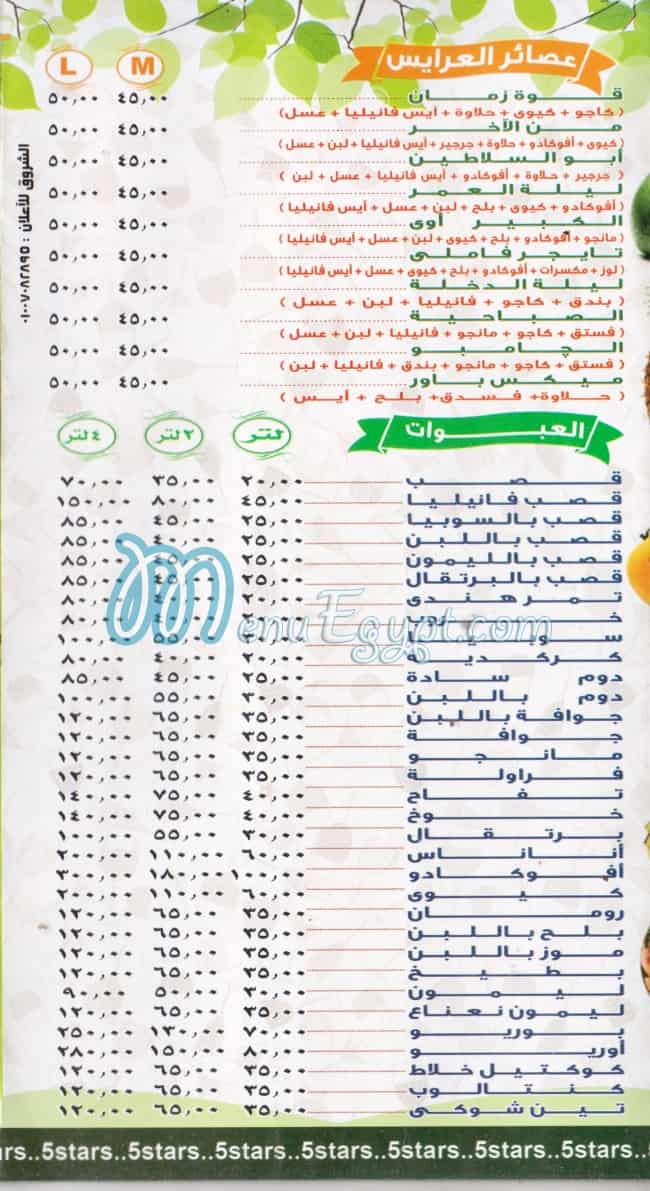 عصائر العرايس
M L
قهوة زمان ٤٥,٠٠ ٥٠,٠٠
( كاجو + كيوى + حلاوة + أيس فانيليا + عسل)
من الآخر ٤٥,٠٠ ٥٠,٠٠
(كيوى + أفوكادو + حلاوة + جرجير + أيس فانيليا + لبن + عسل)
أبو السلاطين ٤٥,٠٠ ٥٠,٠٠
( جرجير + حلاوة + أفوكادو + أيس فانيليا + عسل + لبن )
ليلة العمر ٤٥,٠٠ ٥٠,٠٠
(أفوكادو + كيوى + بلح + لبن + عسل + أيس فانيليا)
الكبير أوى ٤٥,٠٠ ٥٠,٠٠
(مانجو + أفوكادو + بلح + كيوى + لبن + عسل + أيس فانيليا )
تايجر فاملى ٤٥,٠٠ ٥٠,٠٠
(لوز + مكسرات + أفوكادو + بلح + كيوى + عسل + أيس فانيليا )
ليلة الدخلة ٤٥,٠٠ ٥٠,٠٠
( بندق + كاجو + فانيليا + لبن + عسل )
الصباحية ٤٥,٠٠ ٥٠,٠٠
( فستق + كاجو + مانجو + فانيليا + لبن + عسل )
الچامبو ٤٥,٠٠ ٥٠,٠٠
( فستق + كاجو + مانجو + بندق + فانيليا + لبن )
ميكس باور ٤٥,٠٠ ٥٠,٠٠
( حلاوة+ فسدق+ بلح + أيس )
الشروق للأعلان : ٠١٠٠٧٠٨٢٨٩٥
العبوات
لتر ٢ لتر ٤ لتر
قصب ٢٠,٠٠ ٣٥,٠٠ ٧٠,٠٠
قصب فانيليا ٤٥,٠٠ ٨٠,٠٠ ١٥٠,٠٠
قصب بالسوبيا ٢٥,٠٠ ٤٥,٠٠ ٨٥,٠٠
قصب باللبن ٢٥,٠٠ ٨٠,٠٠
قصب بالليمون ٢٥,٠٠ ٨٥,٠٠
قصب بالبرتقال ٢٥,٠٠ ٤٥,٠٠ ٨٥,٠٠
تمر هندى ٢٠,٠٠ ٨٠,٠٠
٨٠,٠٠
سوبيا ١٠٠,٠٠
كركدية ٢٠,٠٠ ٤٠,٠٠ ٨٠,٠٠
دوم سادة ٢٥,٠٠ ٤٥,٠٠ ٨٥,٠٠
دوم باللبن ٣٠,٠٠ ٥٥,٠٠ ١٠٠,٠٠
جوافة باللبن ٣٥,٠٠ ٦٥,٠٠ ١٢٠,٠٠
جوافة ٣٥,٠٠ ٦٥,٠٠ ١٢٠,٠٠
مانجو ٣٥,٠٠ ٦٥,٠٠ ١٢٠,٠٠
فراولة ٣٥,٠٠ ٦٥,٠٠ ١٢٠,٠٠
تفاح ٤٠,٠٠ ٧٥,٠٠ ١٤٠,٠٠
خوخ ٤٠,٠٠ ٧٥,٠٠ ١٤٠,٠٠
برتقال ٣٠,٠٠ ٥٥,٠٠ ١٠٠,٠٠
أناناس ٦٠,٠٠ ١١٠,٠٠ ٢٠٠,٠٠
أفوكادو ١٠٠,٠٠ ١٨٠,٠٠ ٣٠٠,٠٠
كيوى ٦٠,٠٠ ١١٠,٠٠ ٢٠٠,٠٠
رومان ٣٥,٠٠ ٦٥,٠٠ ١٢٠,٠٠
بلح باللبن ٣٥,٠٠ ٦٥,٠٠ ١٢٠,٠٠
موز باللبن ٣٥,٠٠ ٦٥,٠٠ ١٢٠,٠٠
بطيخ ٣٥,٠٠ ٦٥,٠٠ ١٢٠,٠٠
ليمون ٣٠,٠٠ ٥٠,٠٠ ٩٠,٠٠
ليمون نعناع ٣٥,٠٠ ٦٥,٠٠ ١٢٠,٠٠
بوريو ٧٠,٠٠ ١٣٠,٠٠ ٢٥٠,٠٠
أوريو ٨٠,٠٠ ١٥٠,٠٠ ٢٨٠,٠٠
كوكتيل خلاط ٣٥,٠٠ ٦٥,٠٠ ١٢٠,٠٠
كنتالوب ٣٥,٠٠ ٦٥,٠٠ ١٢٠,٠٠
تين شوكى ٣٥,٠٠ ٦٥,٠٠ ١٢٠,٠٠
MenuEgypt.com
ars..5stars..5stars..5stars..5stars..5stars..5stars..5stars..5